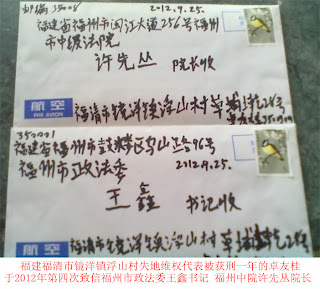 邮编35008 2012.9.25.
福建省福州市闽江大道256号福州
市中级法院
许先丛 院长收
航空
PAR AVION
福清市镜洋镇浮山村草
350001
福建省福州市鼓楼区乌山路96号
福州市政法委 2012.9.25.
王鑫 书记收
航空
福清市镜洋镇浮山村草
福建福清市镜洋镇浮山村失地维权代表被获刑一年的卓友桂
于2012年第四次致信福州市政法委王鑫书记 福州中院许先丛院长